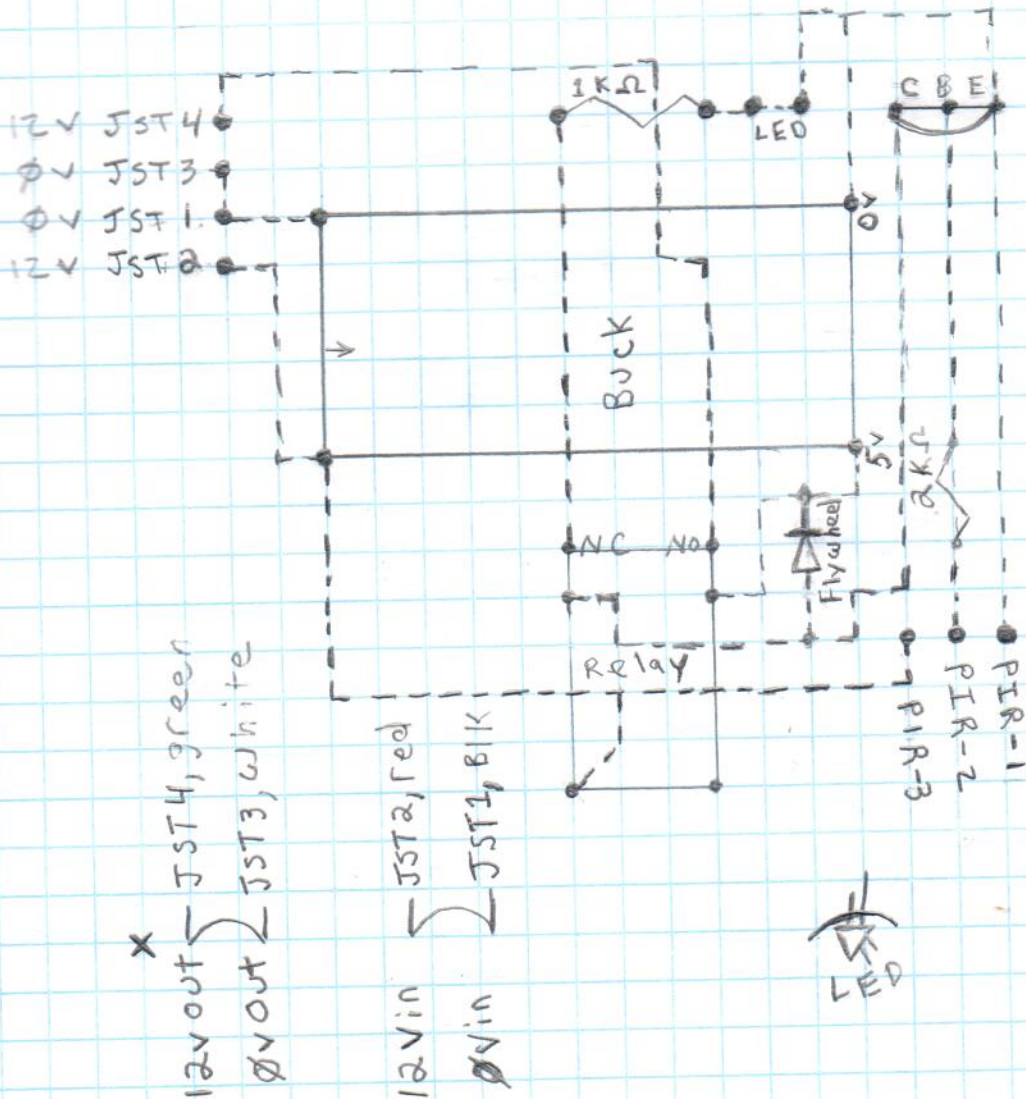 1KΩ
C B E
12V JST4
LED
ØV JST3
ØV JST1.
0V
12V JST2
BUCK
5V
2KΩ
NC NO
Flywheel
Relay
PIR-3
PIR-2
PIR-1
x
12vout JST4, green
Øvout JST3, white
12Vin JST2, red
Øvin JST1, Blk
LED